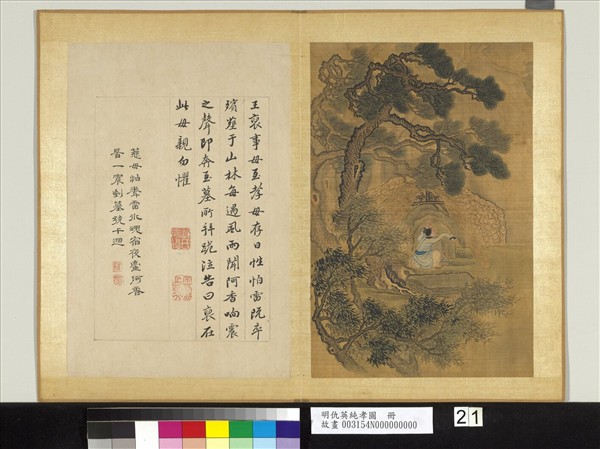 王裒事母至孝母存日性怕雷既卒
殯塟于山林每遇風雨聞阿香响震
之聲即奔至墓所拜跪泣告曰裒在
此母親勿懼
慈母怕聞雷氷魂宿夜臺阿香
時一震到墓繞千迴
明仇英純孝圖 冊
故畫 003154N000000000
21